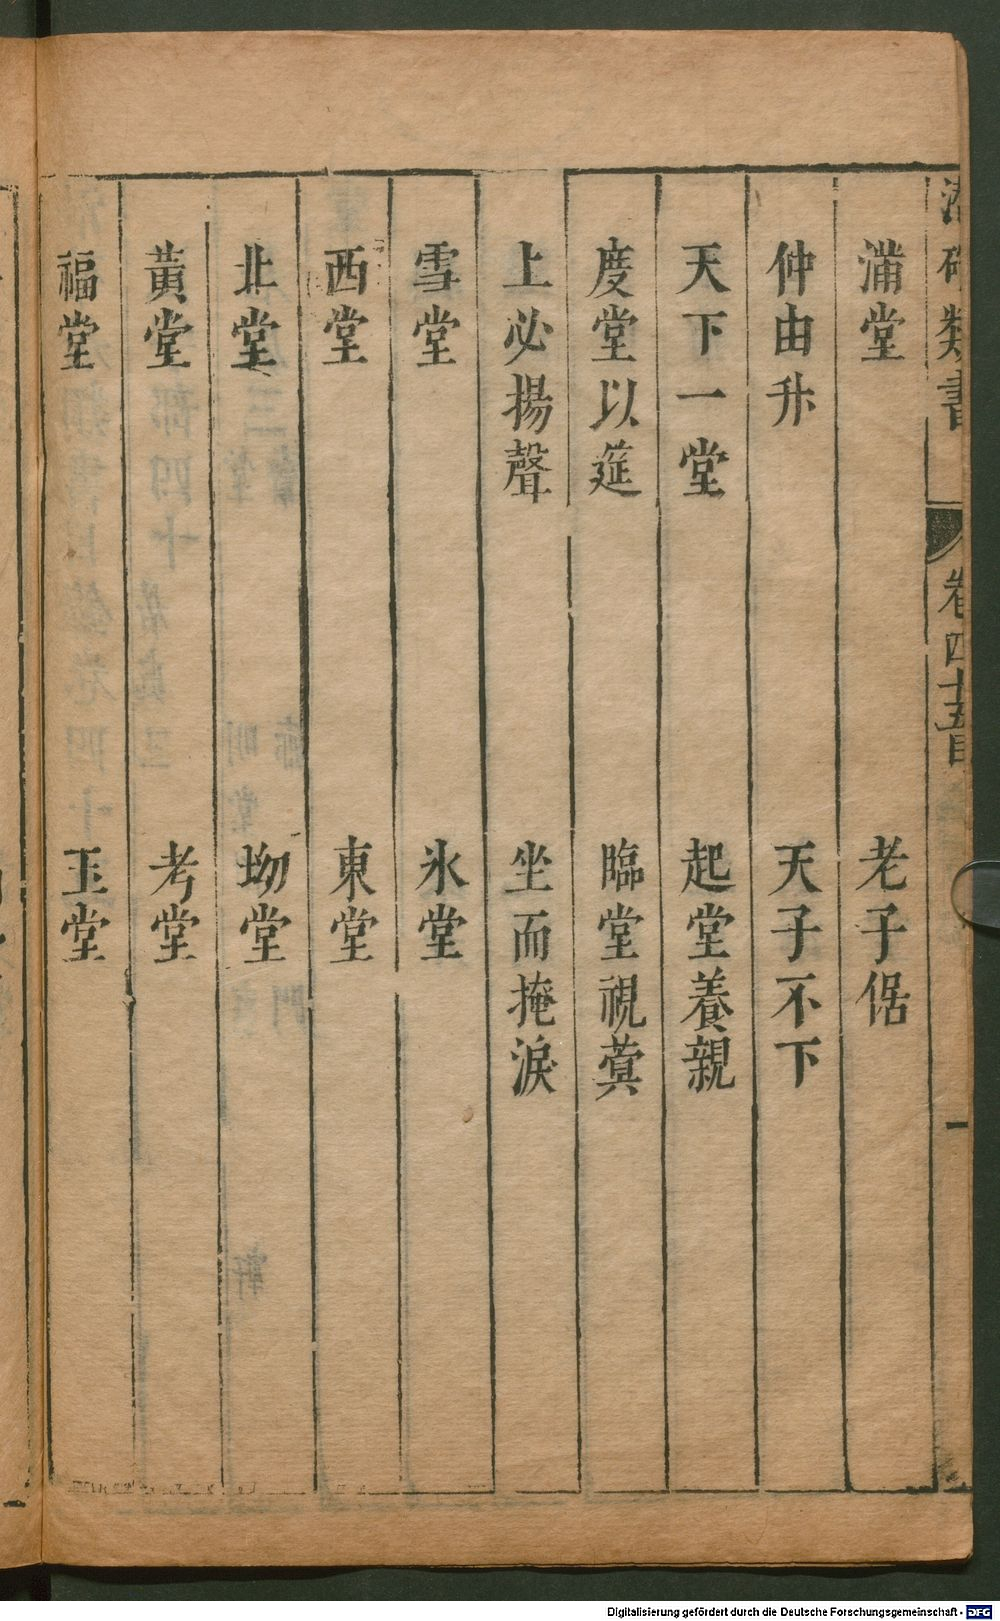 類書
卷四十五目
一
滿堂 老子倨
仲由升 天子不下
天下一堂 起堂養親
度堂以筵 臨堂視蓂
上必揚聲 坐而掩淚
雪堂 氷堂
西堂 東堂
北堂 坳堂
黃堂 考堂
福堂 玉堂
Digitalisierung gefördert durch die Deutsche Forschungsgemeinschaft - DFG